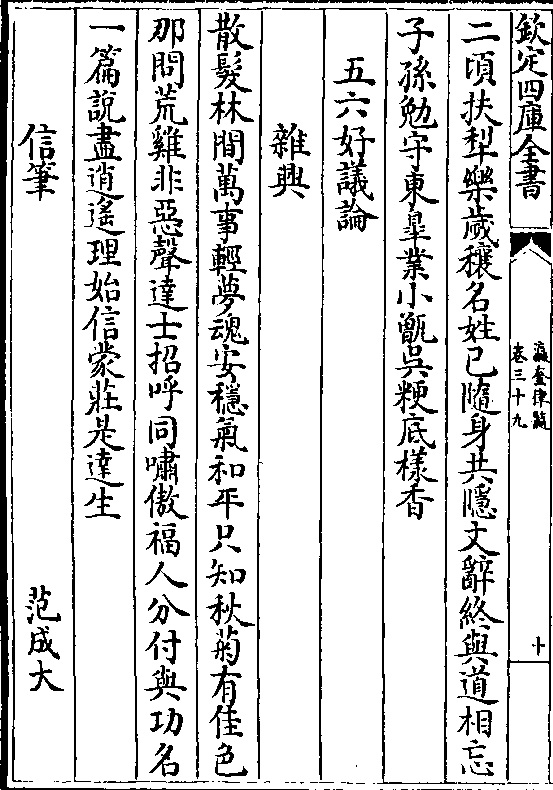 欽定四庫全書
瀛奎律髓
卷三十九
十
二頃扶犁樂歲穰名姓已隨身共隱文辭終與道相忘
子孫勉守東皐業小甑吳粳底樣香
五六好議論
雜興
散髮林間萬事輕夢魂安穩氣和平只知秋菊有佳色
那問荒雞非惡聲達士招呼同嘯傲福人分付與功名
一篇說盡逍遙理始信蒙莊是達生
信筆
范成大